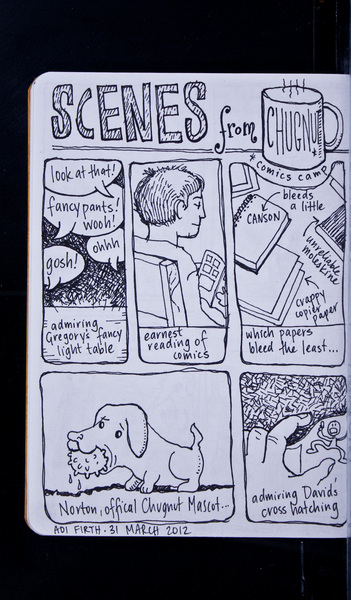 SCENES from CHUGNUT
* comics camp *
look at that!
fancy pants!
wooh!
ohhh
gosh!
admiring
Gregory's fancy
light table
earnest
reading of
comics
bleeds
a little
CANSON
unreliable
moleskine
crappy
copier
paper
which papers
bleed the least...
Norton, offical Chugnut Mascot...
admiring David's
cross hatching
ADI FIRTH · 31 MARCH 2012